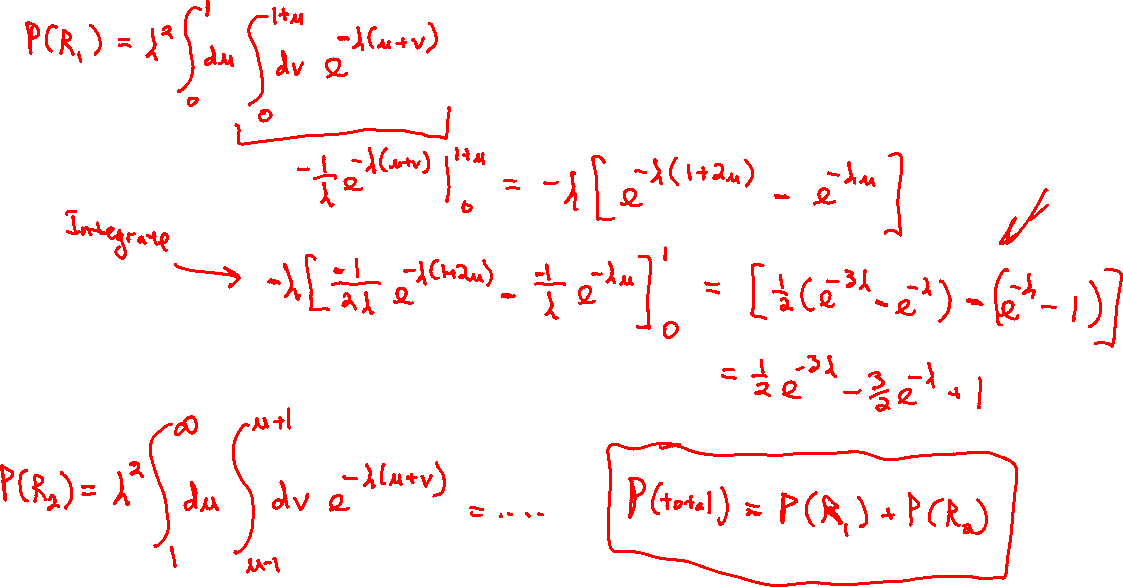 P(R₁) = λ² ∫₀¹ du ∫₀^{1+u} dv e^{-λ(u+v)}
-1/λ e^{-λ(u+v)} |₀^{1+u} = -λ [ e^{-λ(1+2u)} - e^{-λu} ]
Integrate
-λ [ -1/2λ e^{-λ(1+2u)} - -1/λ e^{-λu} ]₀¹ = [ 1/2 (e^{-3λ} - e^{-λ}) - (e^{-λ} - 1) ]
= 1/2 e^{-3λ} - 3/2 e^{-λ} + 1
P(R₂) = λ² ∫₁^∞ du ∫_{u-1}^{u+1} dv e^{-λ(u+v)} = .....
P(total) = P(R₁) + P(R₂)